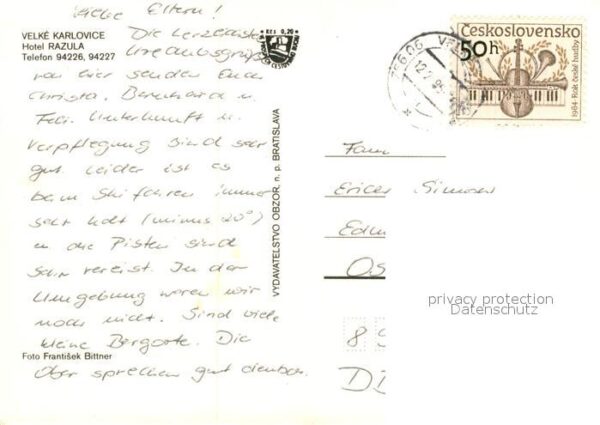 Liebe Eltern!
VELKÉ KARLOVICE
Hotel RAZULA
Telefon 94226, 94227
Die herzlichsten
Urlaubsgrüße
von hier senden Euch
Christa, Bernhard u.
Felix. Unterkunft u.
Verpflegung sind sehr
gut leider ist es
beim Skifahren immer
sehr kalt (minus 20°)
u. die Pisten sind
sehr vereist. In der
Umgebung waren wir
noch nicht. Sind viele
kleine Bergorte. Die
Ober sprechen gut
Foto František Bittner
Kčs 0,20
VYDAVATEĽSTVO OBZOR, n. p. BRATISLAVA
756 06
Československo
50h
1984-Rok české hudby
Fam
Simon
Os
8
D
privacy protection
Datenschutz